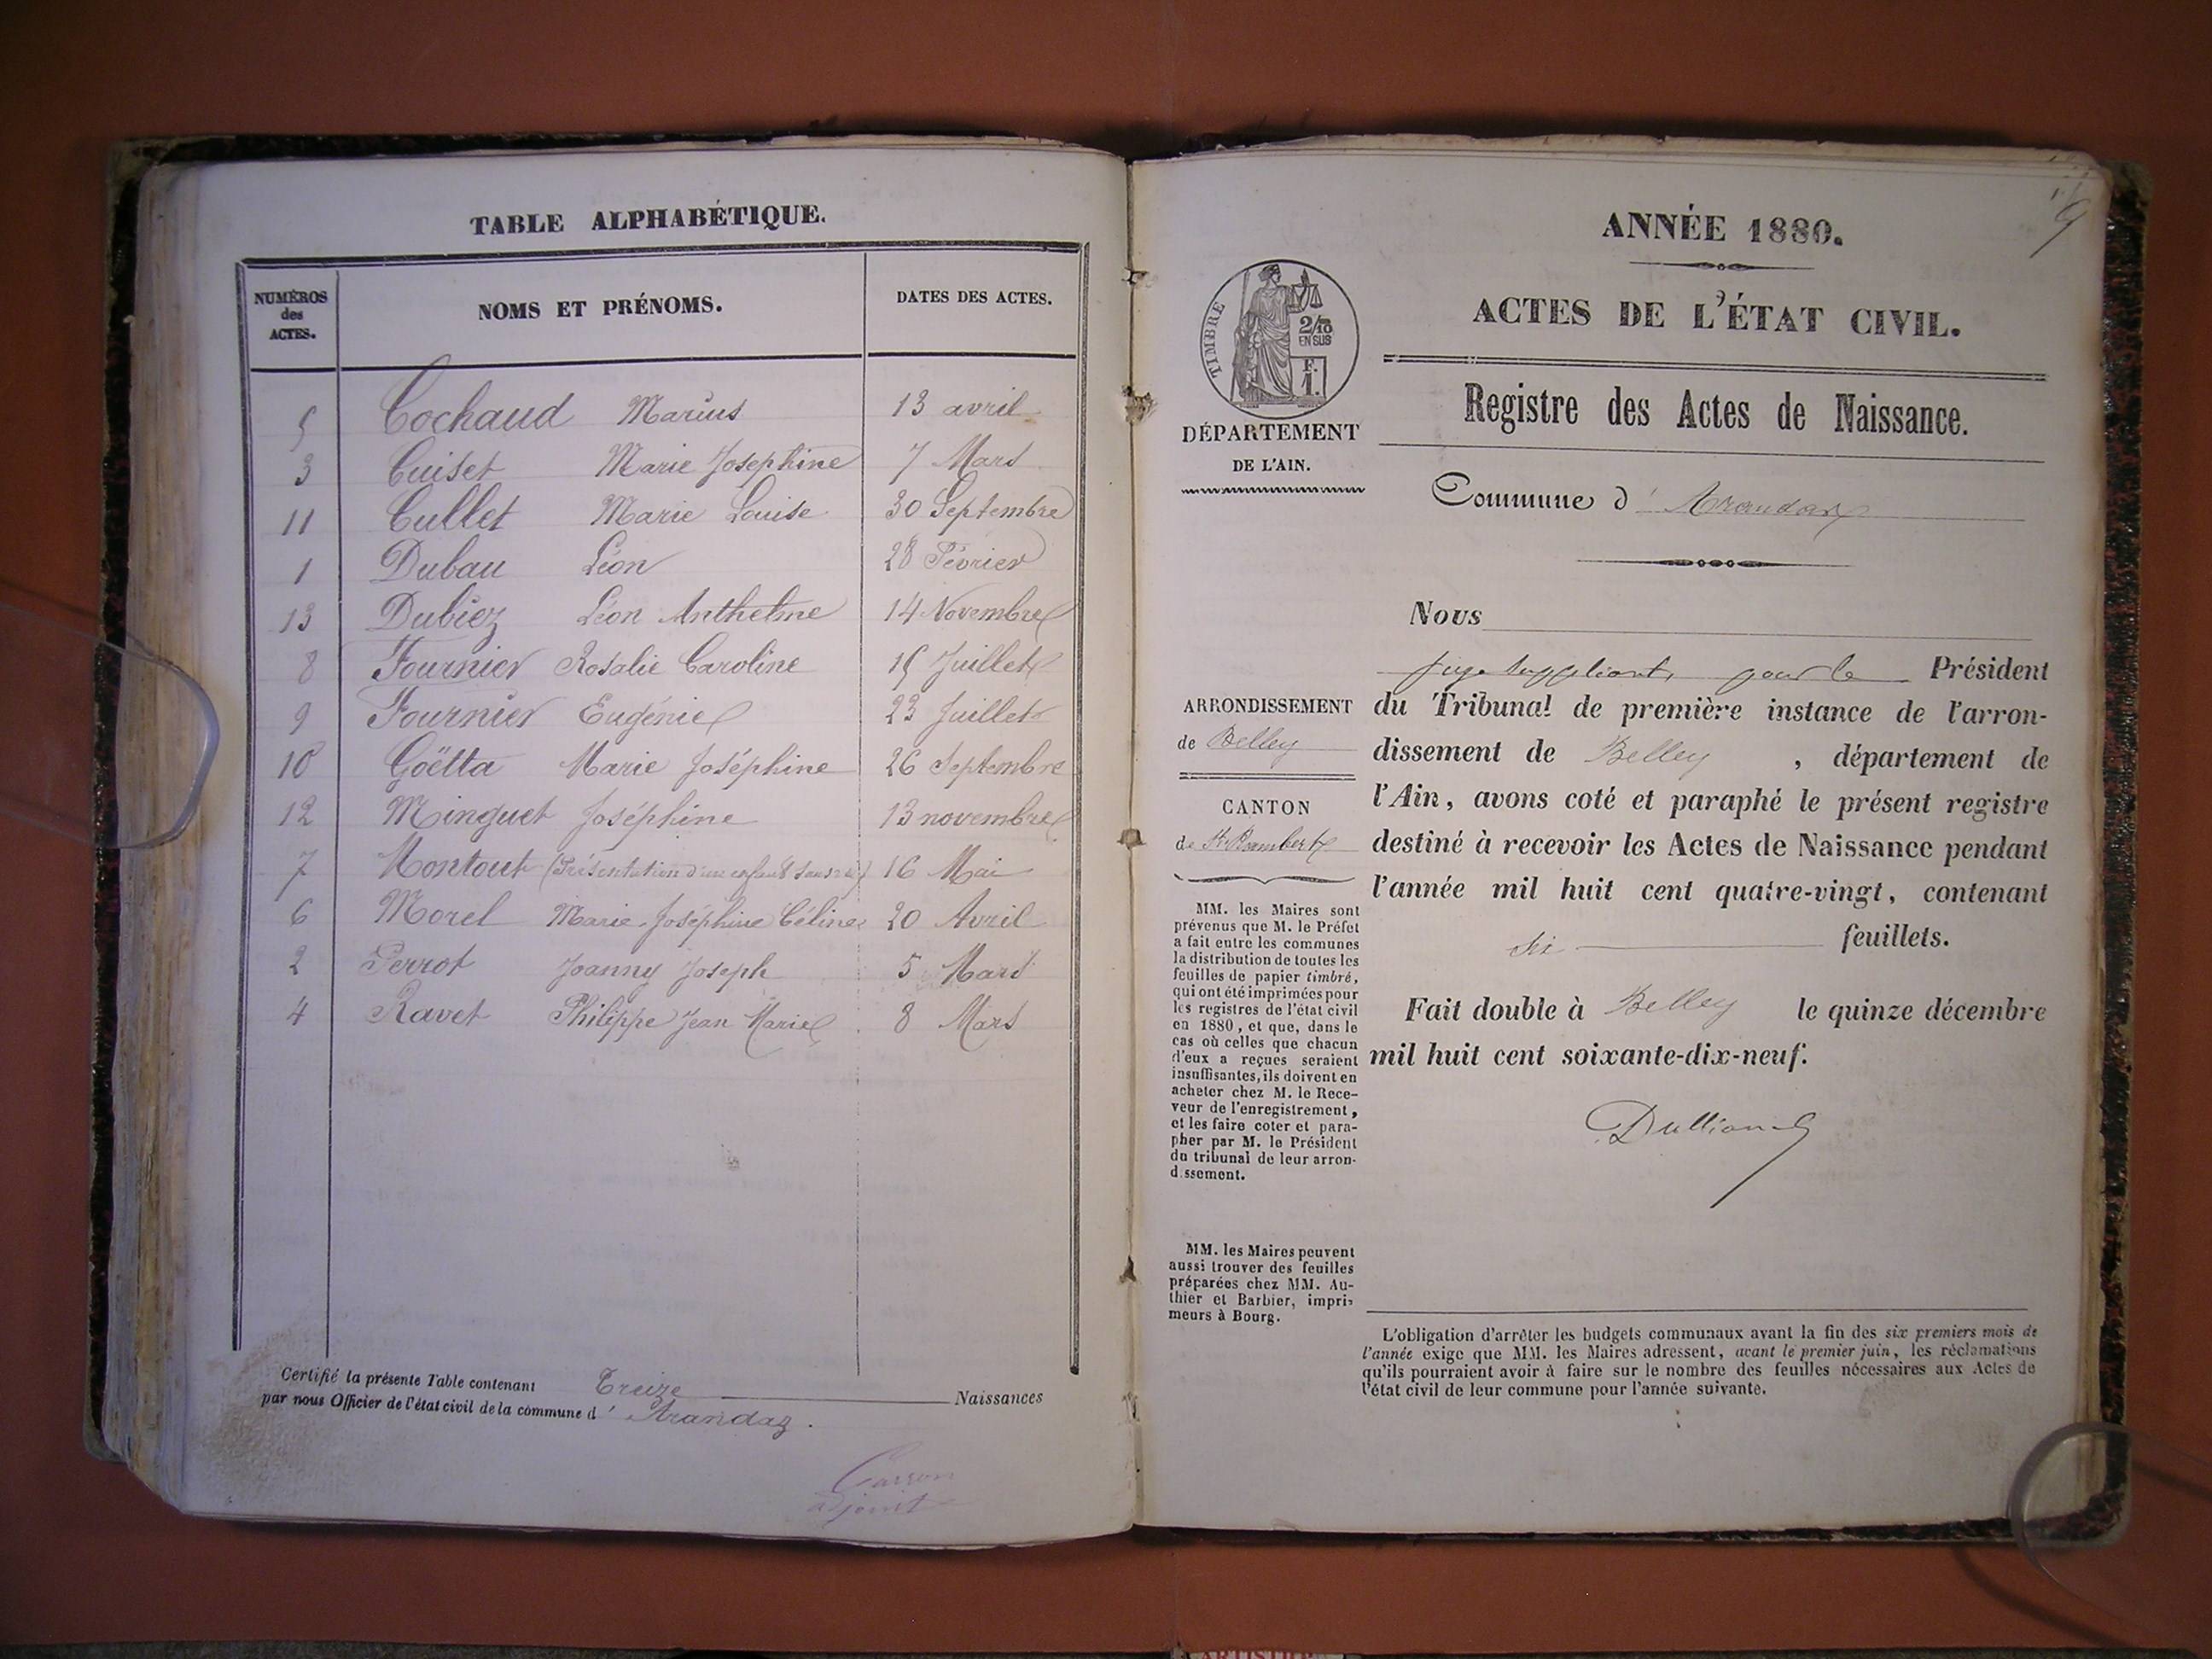 TABLE ALPHABÉTIQUE.
NUMÉROS
des
ACTES.
NOMS ET PRÉNOMS.
DATES DES ACTES.
5 Cochaud Marius 13 avril
3 Cuiset Marie Josephine 7 Mars
11 Cullet Marie Louise 30 Septembre
1 Dubau Léon 28 Février
13 Dubiez Léon Anthelme 14 Novembre
8 Fournier Rosalie Caroline 15 Juillet
9 Fournier Eugénie 23 Juillet
10 Goëtta Marie Joséphine 26 Septembre
12 Minguet Joséphine 13 novembre
7 Montout (Présentation d'un enfant sans vie) 16 Mai
6 Morel Marie Joséphine Céline 20 Avril
2 Perrot Joanny Joseph 5 Mars
4 Ravet Philippe Jean Marie 8 Mars
Certifié la présente Table contenant Treize Naissances
par nous Officier de l'état civil de la commune d' Arandaz.
Carron
adjoint
ANNÉE 1880.
ACTES DE L'ÉTAT CIVIL.
Registre des Actes de Naissance.
Commune d' Arandaz
TIMBRE
2/10
EN SUS
F.
1.
DÉPARTEMENT
DE L'AIN.
ARRONDISSEMENT
de Belley
CANTON
de St Rambert
MM. les Maires sont
prévenus que M. le Préfet
a fait entre les communes
la distribution de toutes les
feuilles de papier timbré,
qui ont été imprimées pour
les registres de l'état civil
en 1880, et que, dans le
cas où celles que chacun
d'eux a reçues seraient
insuffisantes, ils doivent en
acheter chez M. le Rece-
veur de l'enregistrement,
et les faire coter et para-
pher par M. le Président
du tribunal de leur arron-
dissement.
MM. les Maires peuvent
aussi trouver des feuilles
préparées chez MM. Au-
thier et Barbier, impri-
meurs à Bourg.
Nous
juge suppléant, pour le Président
du Tribunal de première instance de l'arron-
dissement de Belley, département de
l'Ain, avons coté et paraphé le présent registre
destiné à recevoir les Actes de Naissance pendant
l'année mil huit cent quatre-vingt, contenant
six feuillets.
Fait double à Belley le quinze décembre
mil huit cent soixante-dix-neuf.
L'obligation d'arrêter les budgets communaux avant la fin des six premiers mois de
l'année exige que MM. les Maires adressent, avant le premier juin, les réclamations
qu'ils pourraient avoir à faire sur le nombre des feuilles nécessaires aux Actes de
l'état civil de leur commune pour l'année suivante.